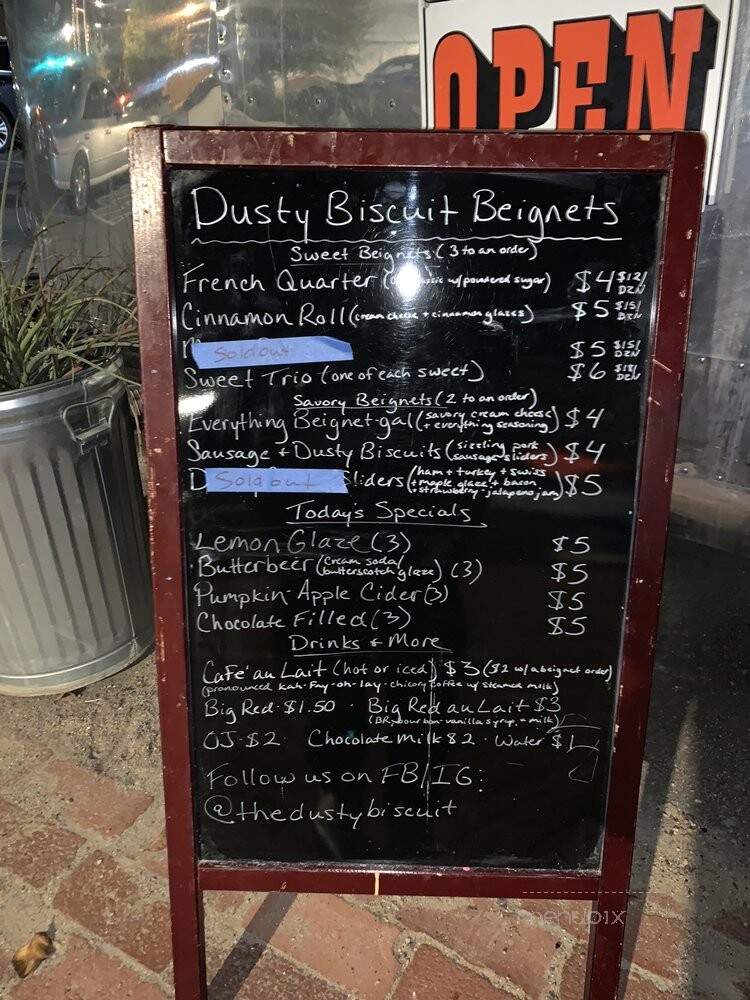 OPEN
Dusty Biscuit Beignets
Sweet Beignets (3 to an order)
French Quarter ( w/ powdered sugar) $4 $12/DZN
Cinnamon Roll (cream cheese + cinnamon glazes) $5 $15/DZN
Sold out $5 $15/DZN
Sweet Trio (one of each sweet) $6 $18/DZN
Savory Beignets (2 to an order)
Everything Beignet-gal (savory cream cheese + everything seasoning) $4
Sausage + Dusty Biscuits (sizzling pork sausage sliders) $4
D Sold out Sliders (ham + turkey + swiss + maple glaze + bacon + strawberry-jalapeno jam) $5
Today's Specials
Lemon Glaze (3) $5
Butterbeer (cream soda/ butterscotch glaze) (3) $5
Pumpkin-Apple Cider (3) $5
Chocolate Filled (3) $5
Drinks & More
Cafe' au Lait (hot or iced) $3 ($2 w/ a beignet order)
(pronounced kah-fay-oh-lay - chicory coffee w/ steamed milk)
Big Red - $1.50 · Big Red au Lait $3
(BR, bourbon-vanilla syrup, + milk)
OJ-$2 · Chocolate Milk $2 · Water $1
Follow us on FB/IG:
@thedustybiscuit
menupix